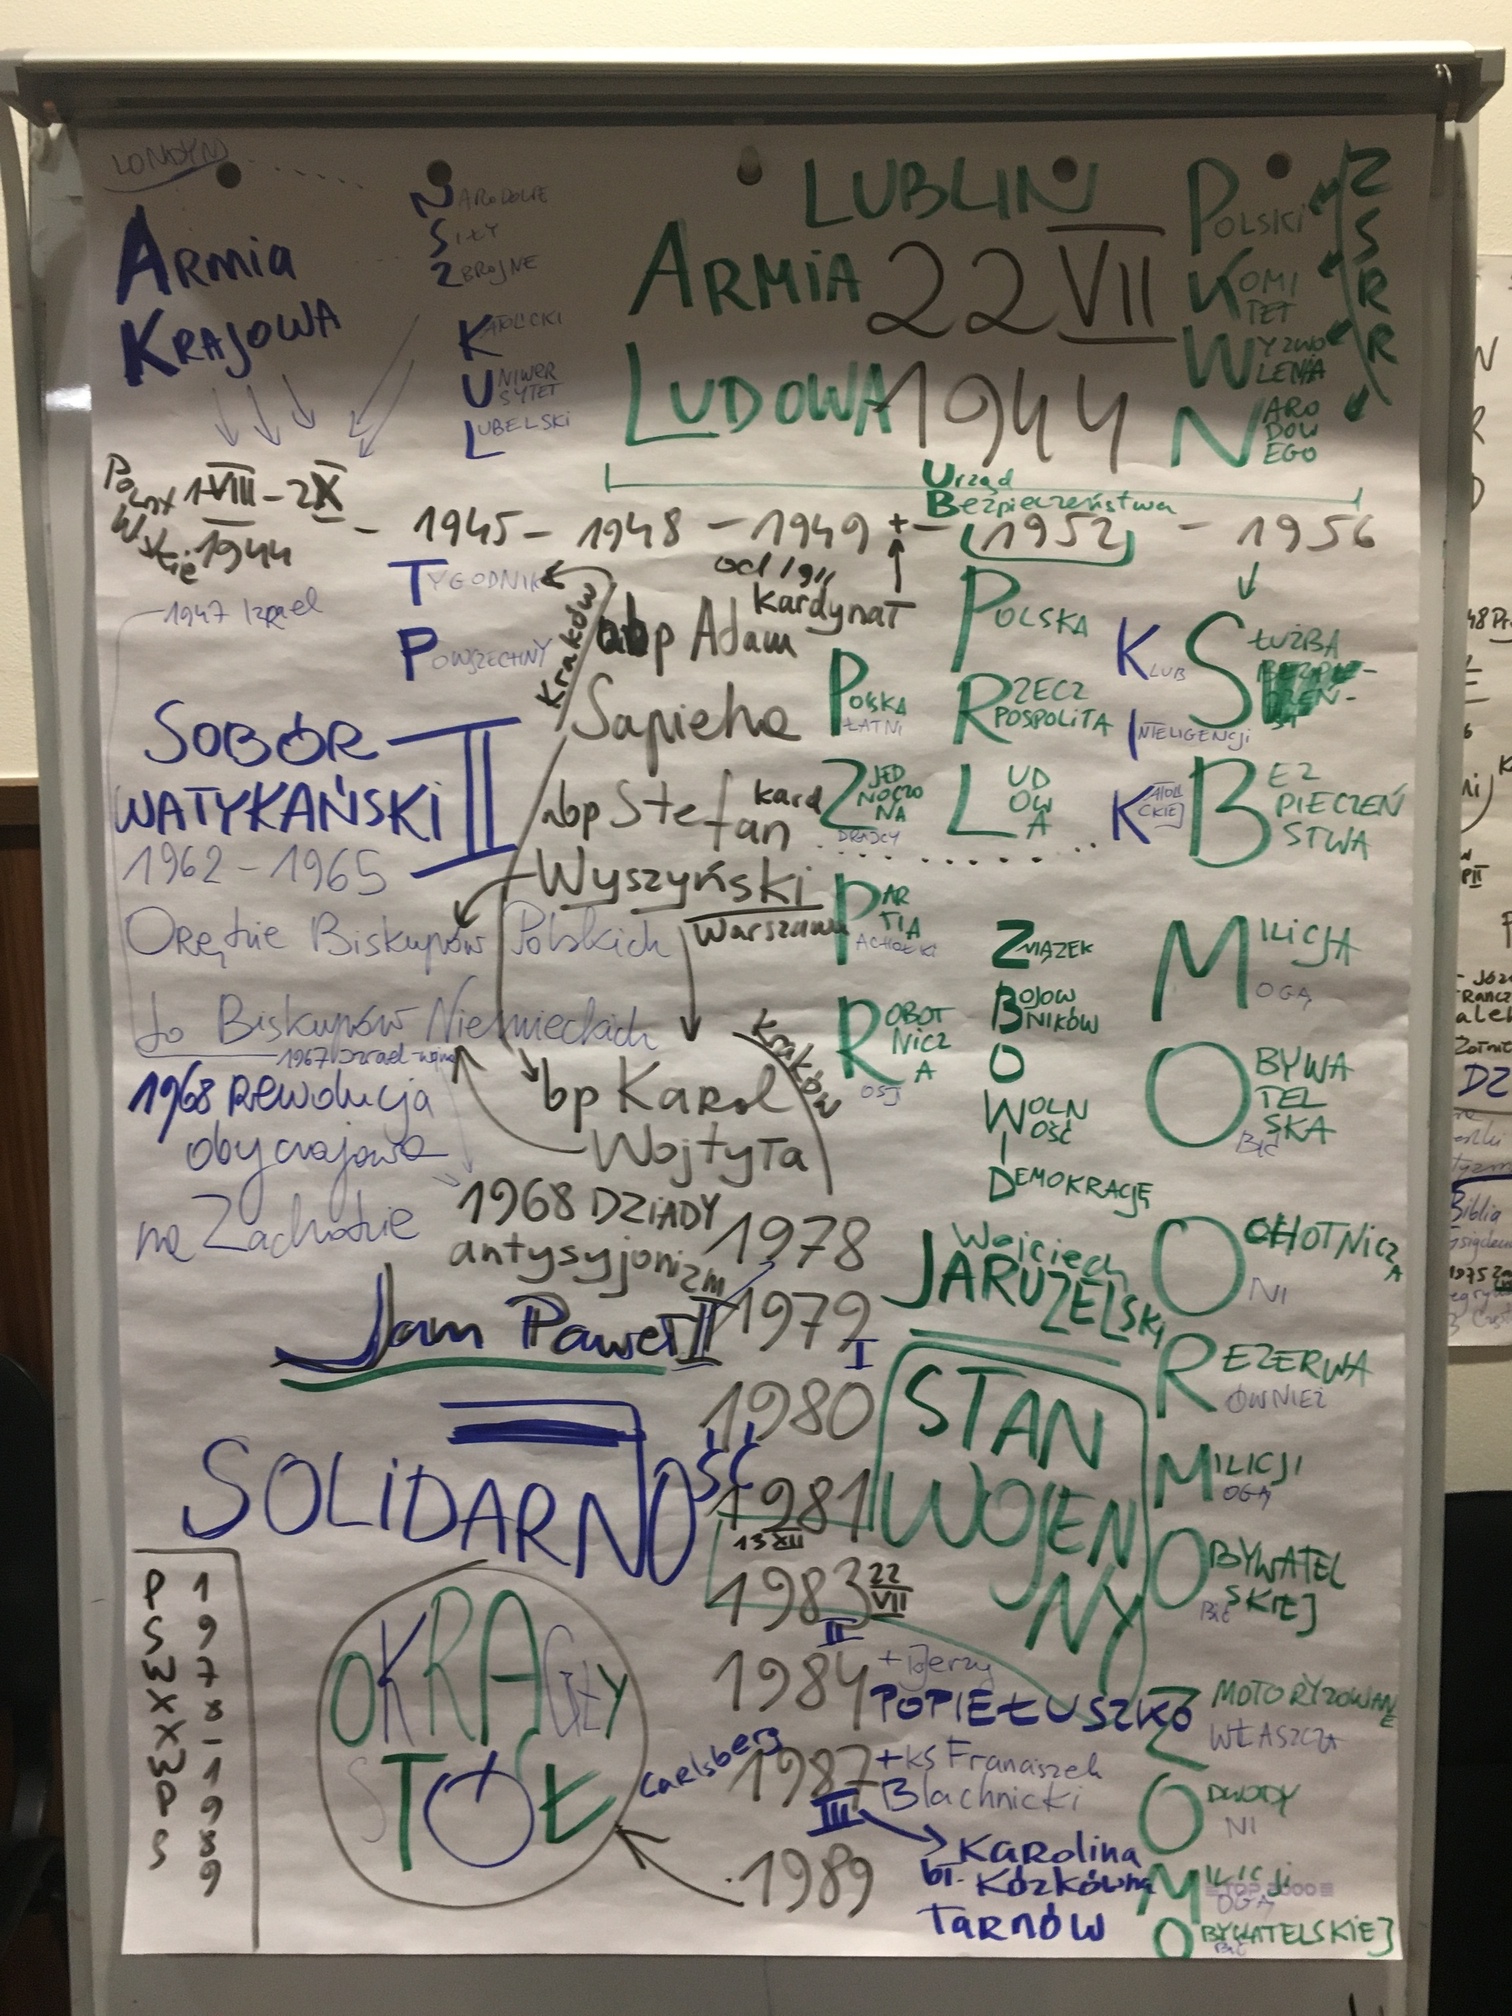 LONDYN
Armia
Krajowa
Narodowe
Siły
Zbrojne
Katolicki
Uniwersytet
Lubelski
LUBLIN
Armia
Ludowa
22 VII
1944
Polski
Komitet
Wyzwolenia
Narodowego
ZSRR
1 VIII – 2 X
1944
– 1945 – 1948 – 1949 + – (1952) – 1956
Urząd
Bezpieczeństwa
1947 Izrael
Tygodnik
Powszechny
Kraków
od 1911
kardynał
abp Adam
Sapieha
abp Stefan
kard
Wyszyński
Warszawa
SOBÓR
WATYKAŃSKI II
1962 – 1965
Orędzie Biskupów Polskich
do Biskupów Niemieckich
1967 Izrael - wojna
1968 Rewolucja
obyczajowa
na Zachodzie
bp Karol
Wojtyła
Kraków
1968 DZIADY
antysyjonizm
Polska
ŁATNI
Zjednoczona
ZDRAJCY
Partia
ACHOŁKI
Robotnicza
OSJI
Polska
Rzeczpospolita
Ludowa
Klub
Inteligencji
Katolickiej
Służba
Bezpieczeństwa
Związek
Bojowników
O
Wolność
I
Demokrację
Milicja
OGĄ
Obywatelska
BIĆ
OCHOTNICZA
NI
REZERWA
ÓWNIEŻ
MILICJI
OGĄ
OBYWATELSKIEJ
BIĆ
ZMOTORYZOWANE
WŁASZCZA
ODWODY
NI
MILICJI
OGĄ
OBYWATELSKIEJ
BIĆ
Wojciech
JARUZELSKI
STAN
WOJENNY
1978
Jan Paweł II
1979
I
1980
SOLIDARNOŚĆ
1981
13 XII
1983 22 VII
II
1984 + Jerzy
POPIEŁUSZKO
Carlsberg
1987 + ks Franciszek
Blachnicki
III
Karolina
bł. Kózkówna
Tarnów
1989
OKRĄGŁY
STÓŁ
P 1
S 9
W 7
X 8
X -
W 1
P 9
S 8
9